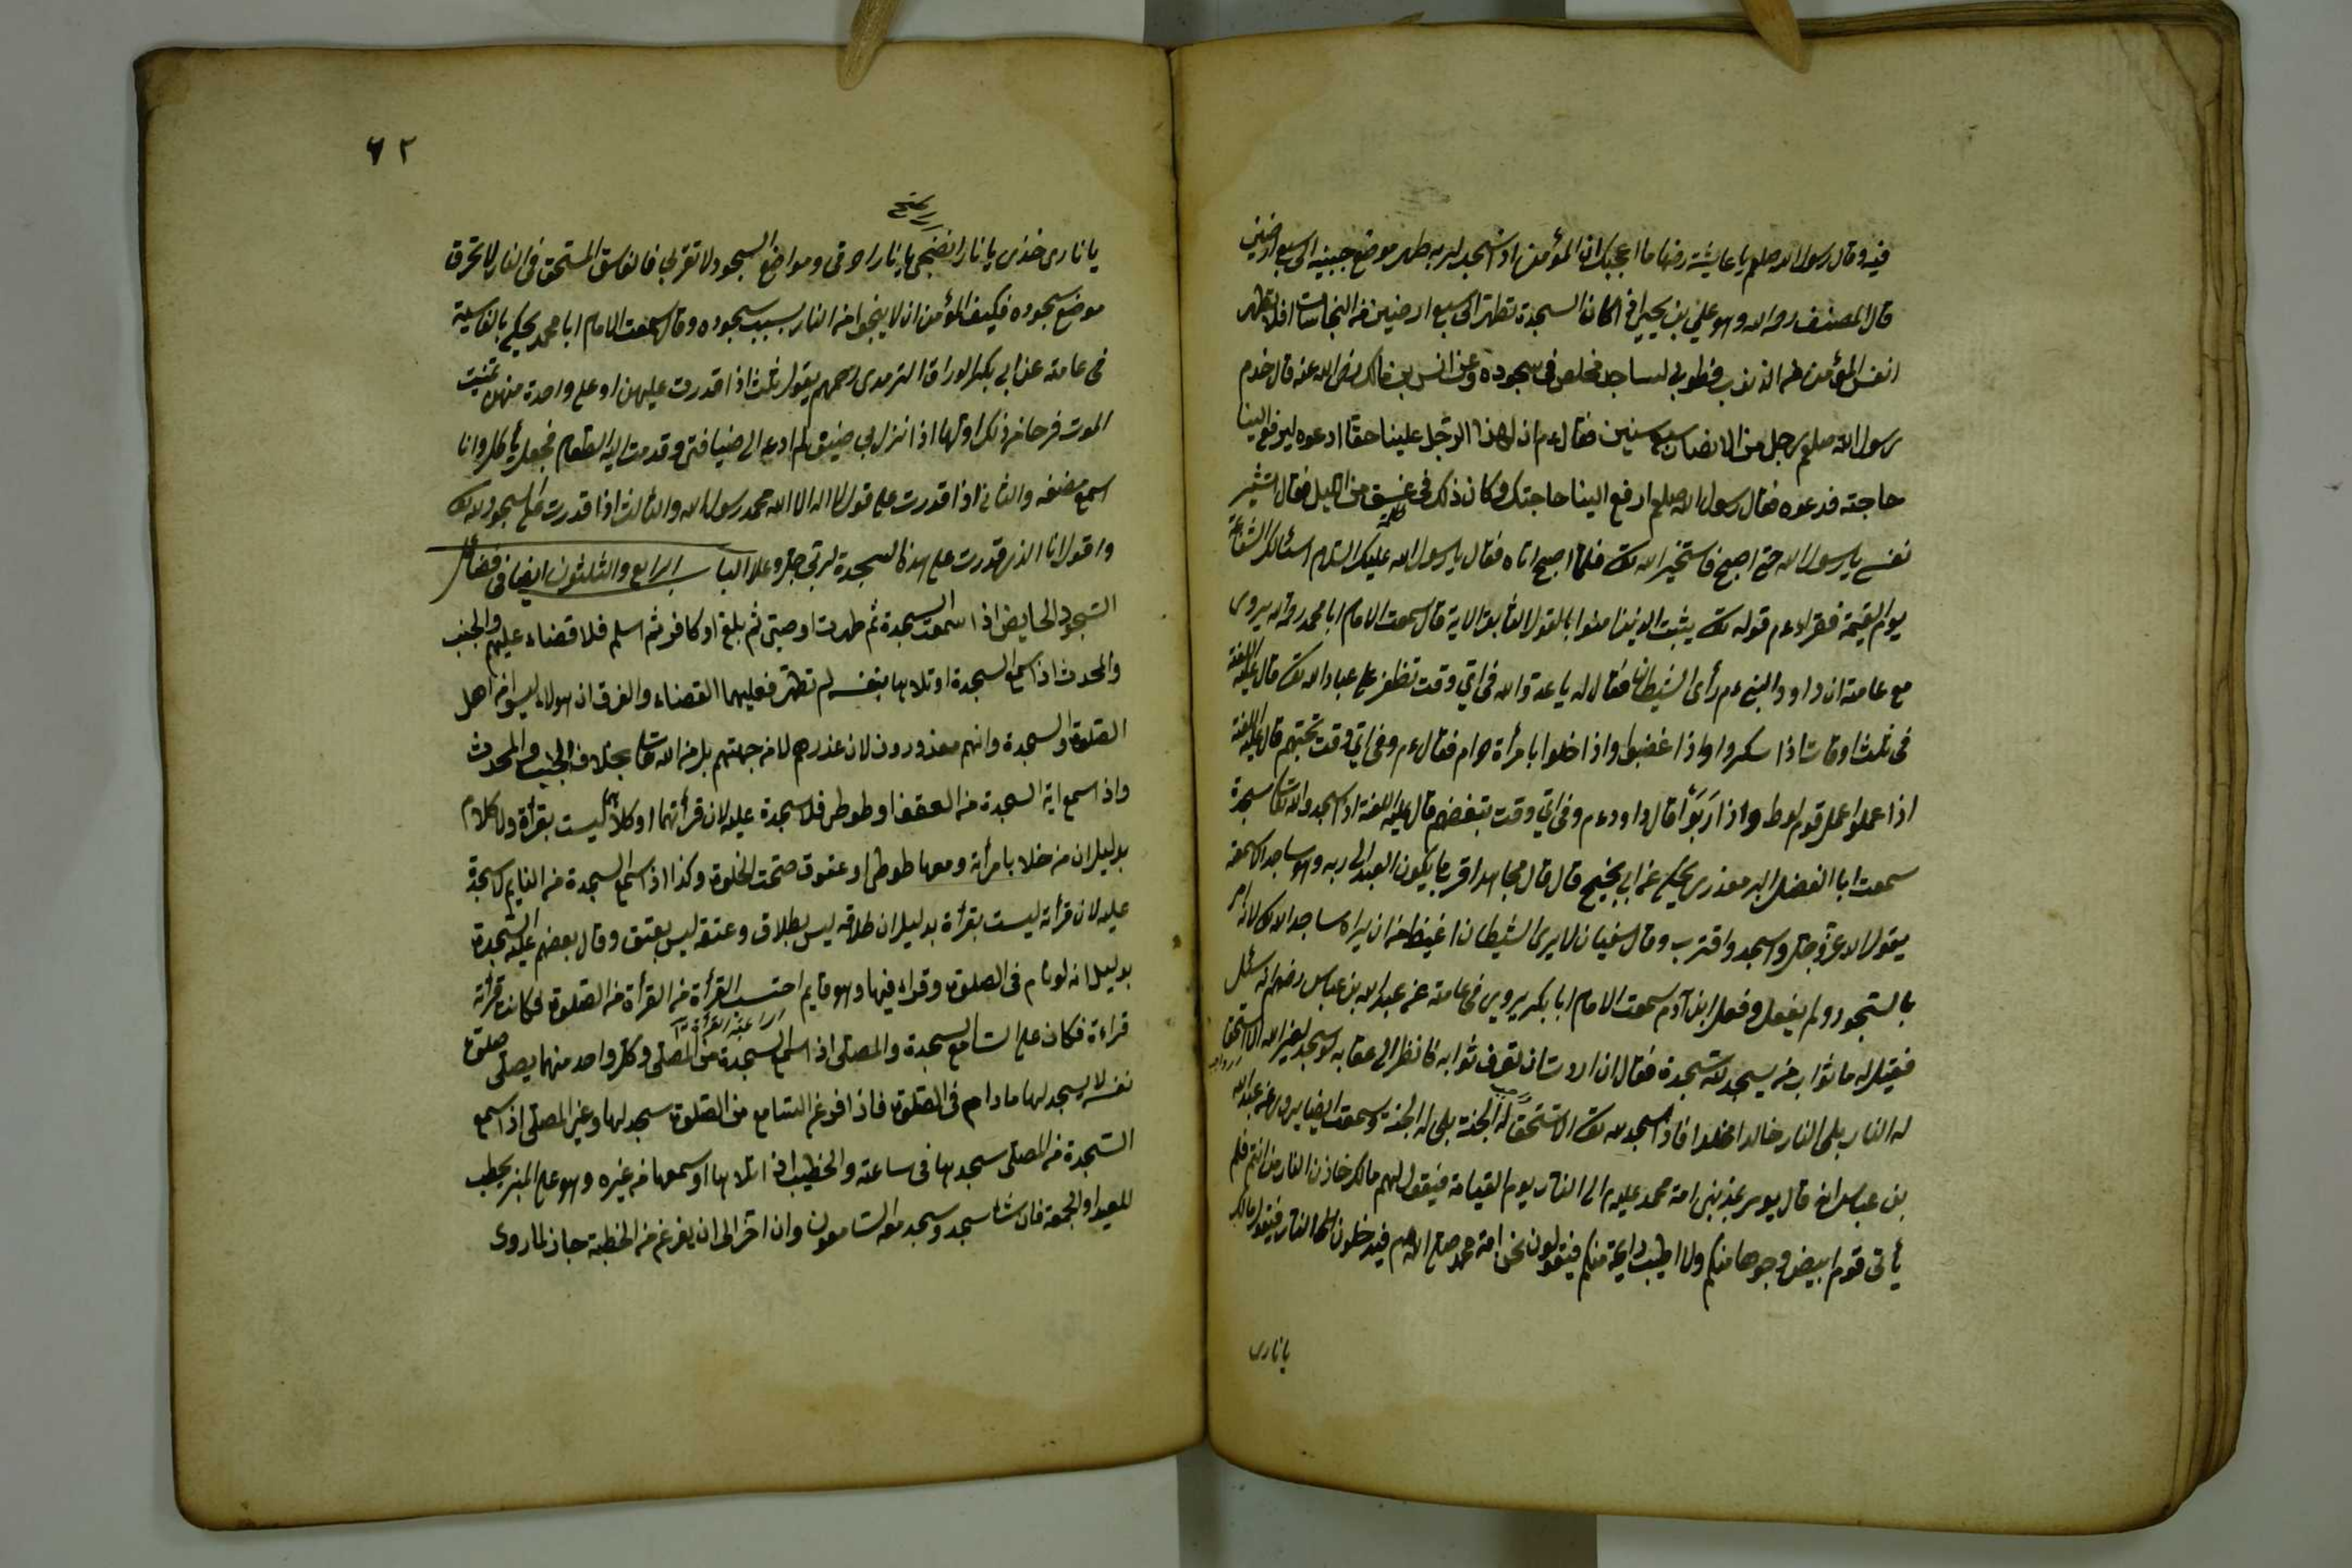 فيه وقال رسول الله صلعم يا عايشة رضها ما اعجبك ان المؤمن اذا سجد لربه طهر موضع جبينه الى سبع ارضين
قال المصنف رحمه الله وهو علي بن يحيى اذا كان السجدة تطهر الى سبع ارضين من النجاسات افلا يطهر
انفس المؤمن من الذنوب فطوبى لساجد مخلص في سجوده وعن انس بن مالك رضى الله عنه قال خدم
رسول الله صلعم رجل من الانصار سبع سنين فقال ءم ان لهذا الرجل علينا حقا ادعوه ليرفع الينا
حاجته فدعوه فقال رسول الله صلعم ارفع الينا حاجتك وكان ذلك في غسق من الليل فقال استشير
نفسي يا رسول الله حتى اصبح فاستخير الله تعا فلما اصبح اتاه فقال يا رسول الله عليك السلام اسئالك الشفاعة
يوم القيمة فقراء ءم قوله تعا يثبت الله الذين امنوا بالقول الثابت الاية قال سمعت الامام ابا محمد رحمه الله يروى
مع عامته ان داود النبي ءم رأى الشيطان فقال له يا عدو الله في اي وقت تظفر على عباد الله تعا قال عليه اللعنة
في ثلث اوقات اذا سكروا واذا غضبوا واذا خلوا بامرأة حرام فقال ءم وفي اي وقت تحبهم قال عليه اللعنة
اذا عملوا عمل قوم لوط واذا ربوا قال داود ءم وفي اي وقت تبغضهم قال عليه اللعنة اذا سجدوا لله تعا سجدة
سمعت ابا الفضل البرمعذري يحكي عن ابي نجيح قال قال مجاهد اقرب ما يكون العبد الى ربه وهو ساجد الا سمعه
يقول الله عز وجل واسجد واقترب وقال سفيان لا يرى الشيطان اغيظ من ان يراه ساجدا لله تعا لانه امر
بالسجود ولم يفعل وفعل ابن آدم سمعت الامام ابا بكر يروى في عامته عن عبد الله بن عباس رضهم انه سئل
فقيل له ما ثواب من يسجد لله سجدة فقال ان اردت ان تعرف ثوابه فانظر الى عقابه لو سجد لغير الله الا استحق
له النار بلى النار خالدا مخلدا فاذا سجد لله تعا الا استحق له الجنة بلى له الجنة وسمعت ايضا يروى عن عبد الله
بن عباس انه قال يومر بمذنبي امة محمد عليه م الى النار يوم القيامة فيقول لهم مالك خازن النار من انتم فلم
يأتى قوم ابيض وجوها منكم ولا اطيب رايحة منكم فيقولون نحن امة محمد صلى الله عم فيدخلون النار فيقول مالك
يا نارى
٦٢
يا نارى خذى يا نار انضجى يا نار احرقى ومواضع السجود لا تقربى فالفاسق المستحق في النار لا تحرق
موضع سجوده فكيف المؤمن ان لا ينجوا من النار بسبب سجوده وقال سمعت الامام ابا محمد يحكى بالفارسية
في عامته عن ابي بكر الوراق الترمدى رحمهم يقول ثلث اذا قدرت عليهن او على واحدة منهن تمنيت
الموت فرحا من ذلك اولها اذا نزل بي ضيق لم ادعه الى ضيافتى وقدمت اليه الطعام فجعل يأكل وانا
اسمع مضغه والثانى اذا قدرت على قول لا اله الا الله محمد رسول الله والثالث اذا قدرت على السجود لله تعا
واقول انا الذى قدرت على هذه السجدة لربى جل وعلا الباب الرابع والثلثون ايضا في فضائل
السجود الحايض اذا سمعت السجدة ثم طهرت او صبى ثم بلغ او كافر ثم اسلم فلا قضاء عليهم والجنب
والمحدث اذا سمع السجدة او تلاها بنفسه لم تطهر فعليهما القضاء والفرق ان هولاء ليسوا من اهل
الصلوة والسجدة وانهم معذورون لان عذرهم لا من جهتهم بل من الله تعا بخلاف الجنب والمحدث
واذا سمع اية السجدة من العقعق او طوطى فلا سجدة عليه لان قرأتهما او كلامهما ليست بقرأة ولا كلام
بدليل ان من خلا بامرأة ومعها طوطى او عقوق صحت الخلوة وكذا اذا سمع السجدة من النايم لا سجدة
عليه لان قرأته ليست بقرأة بدليل ان طلاقه ليس بطلاق وعتقه ليس بعتق وقال بعضهم عليه السجدة
بدليل انه لو نام في الصلوة وقراء فيها وهو قايم احتسب القرأة من القرأة من الصلوة لكانت قرأته
قراءة فكان على السامع سجدة والمصلى اذا سمع السجدة من المصلى وكل واحد منهما يصلى صلوة
نفسه لا يسجد لها ما دام في الصلوة فاذا فرغ السامع من الصلوة سجد لها وغير المصلى اذا سمع
السجدة من المصلى سجد بها في ساعته والخطيب اذا تلاها او سمعها من غيره وهو على المنبر يخطب
للعيد او الجمعة فان شاء سجد وسجد معه السامعون وان اخر الى ان يفرغ من الخطبة جاز لما روى